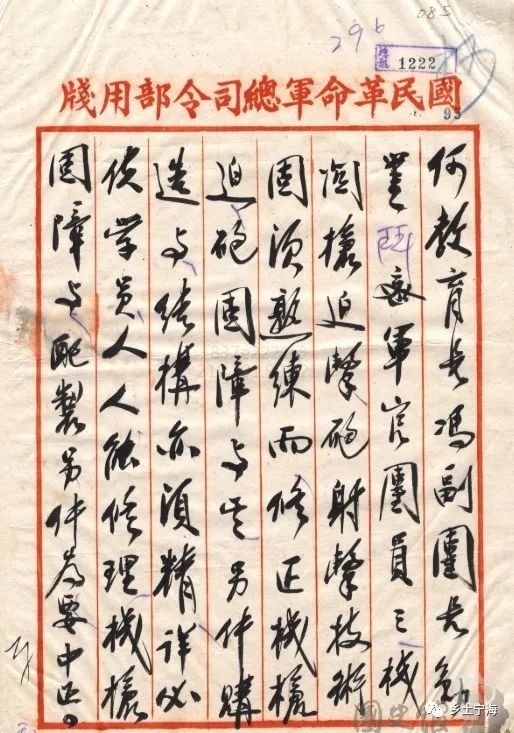 085
296
1222
93
國民革命軍總司令部用牋
何教育長馮副團長勛
鑒軍官團員之機
關槍迫擊砲射擊技術
固須熟練而修正機槍
迫砲固障与其另件購
造与結構亦須精詳必
使學員人人能修理機槍
固障与配製另件為要中正。
國史館
乡土宁海